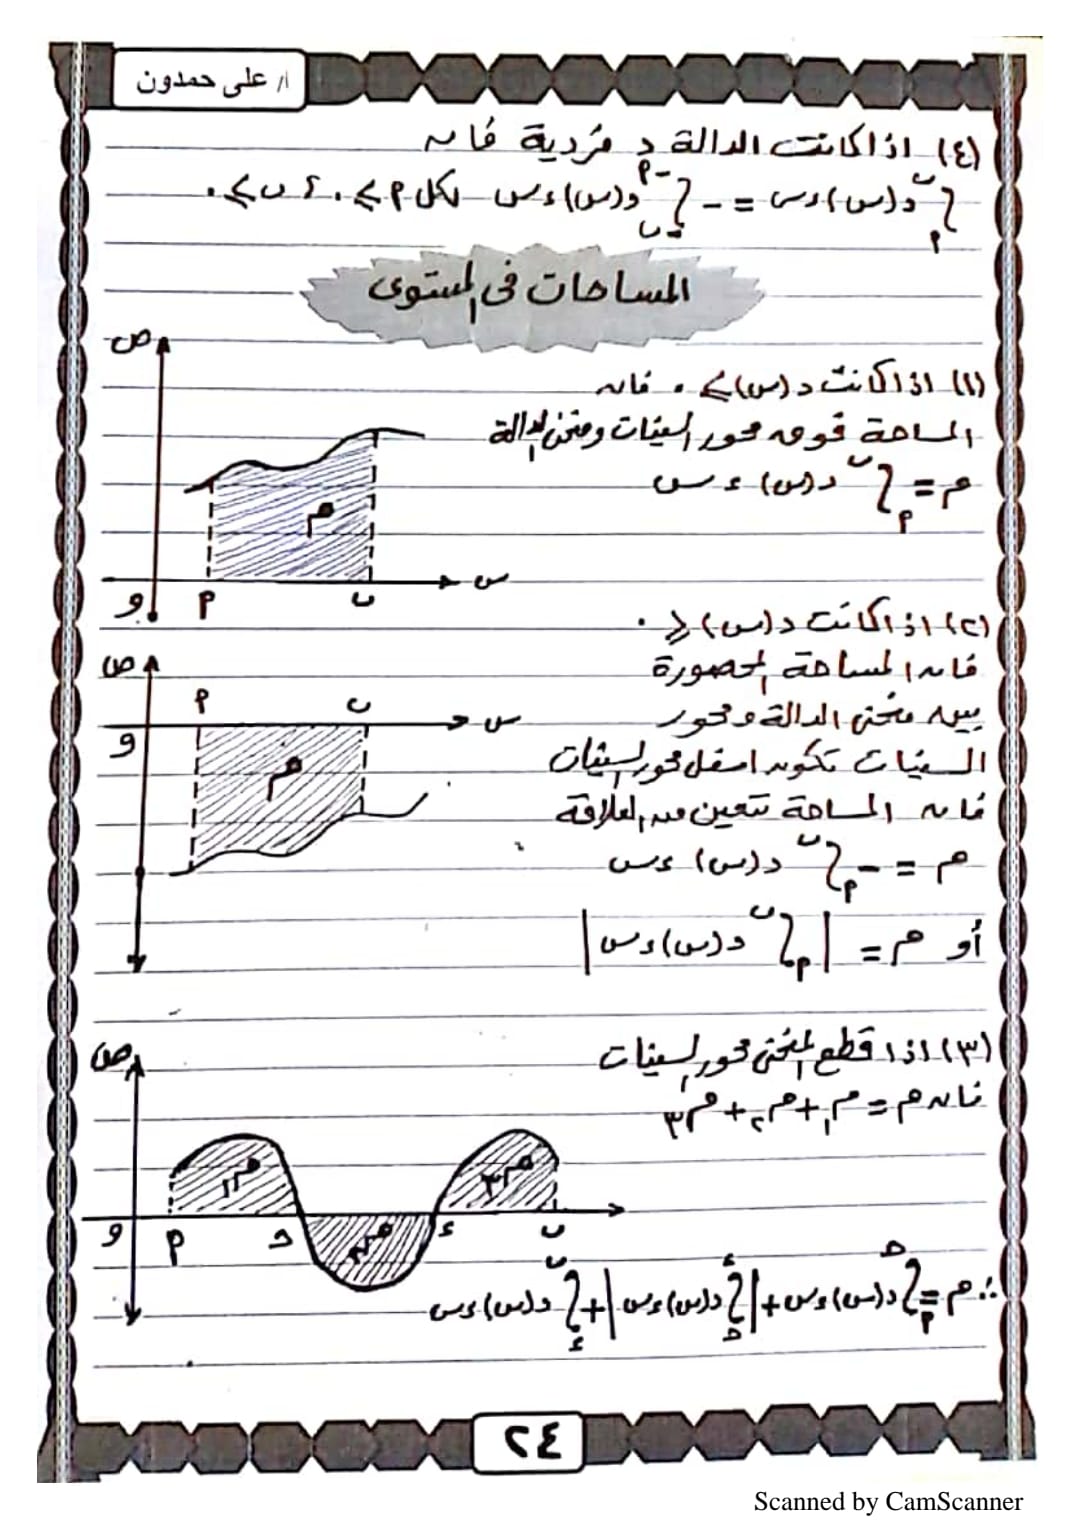 أ/ على حمدون
(٤) اذا كانت الدالة د فردية فان
ₚ∫ᵇ د(س)ءس = - ₋ب∫⁻ᵖ د(س)ءس لكل م ≥ ٠، ب ≥ ٠
المساحات فى المستوى
(١) اذا كانت د(س) ≥ ٠ فان
المساحة فوق محور السينات ومنحنى الدالة
م = ∫ د(س) ءس
ص
م
س
و
م
ب
(٢) اذا كانت د(س) ≤ ٠
فان المساحة المحصورة
بين منحنى الدالة ومحور
السينات تكون اسفل محور السينات
فان المساحة تتعين من العلاقة
م = - ∫ د(س) ءس
أو م = | ∫ د(س) ءس |
ص
م
ب
س
و
م
(٣) اذا قطع المنحنى محور السينات
فان م = م١ + م٢ + م٣
ص
م١
م٢
م٣
و
م
حـ
ء
ب
∴ م = ∫ د(س)ءس + | ∫ د(س)ءس | + ∫ د(س)ءس
٢٤
Scanned by CamScanner